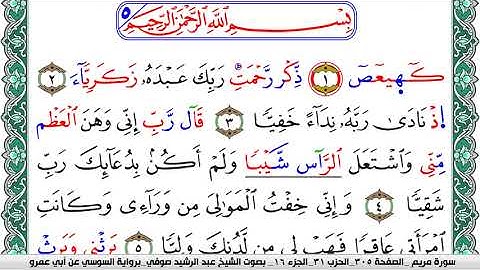 بِسْمِ ٱللَّهِ ٱلرَّحْمَٰنِ ٱلرَّحِيمِ
كٓهيعٓصٓ ١ ذِكْر رَّحْمَتِ رَبِّكَ عَبْدَهُۥ زَكَرِيَّآءَ ٢
إِذْ نَادَىٰ رَبَّهُۥ نِدَآءً خَفِيّٗا ٣ قَال رَّبِّ إِنِّي وَهَنَ ٱلْعَظْم
مِّنِّي وَٱشْتَعَلَ ٱلرَّاس شَّيْبٗا وَلَمْ أَكُنۢ بِدُعَآئِكَ رَبِّ
شَقِيّٗا ٤ وَإِنِّي خِفْتُ ٱلْمَوَٰلِيَ مِن وَرَآءِي وَكَانَتِ
ٱمْرَأَتِي عَاقِرٗا فَهَبْ لِي مِن لَّدُنكَ وَلِيّٗا ٥ يَرِثْنِي وَيَرِثْ
سورة مريم _ الصفحة ٣٠٥_ الحزب ٣١_ الجزء ١٦_ بصوت الشيخ عبد الرشيد صوفي_ برواية السوسي عن أبي عمرو